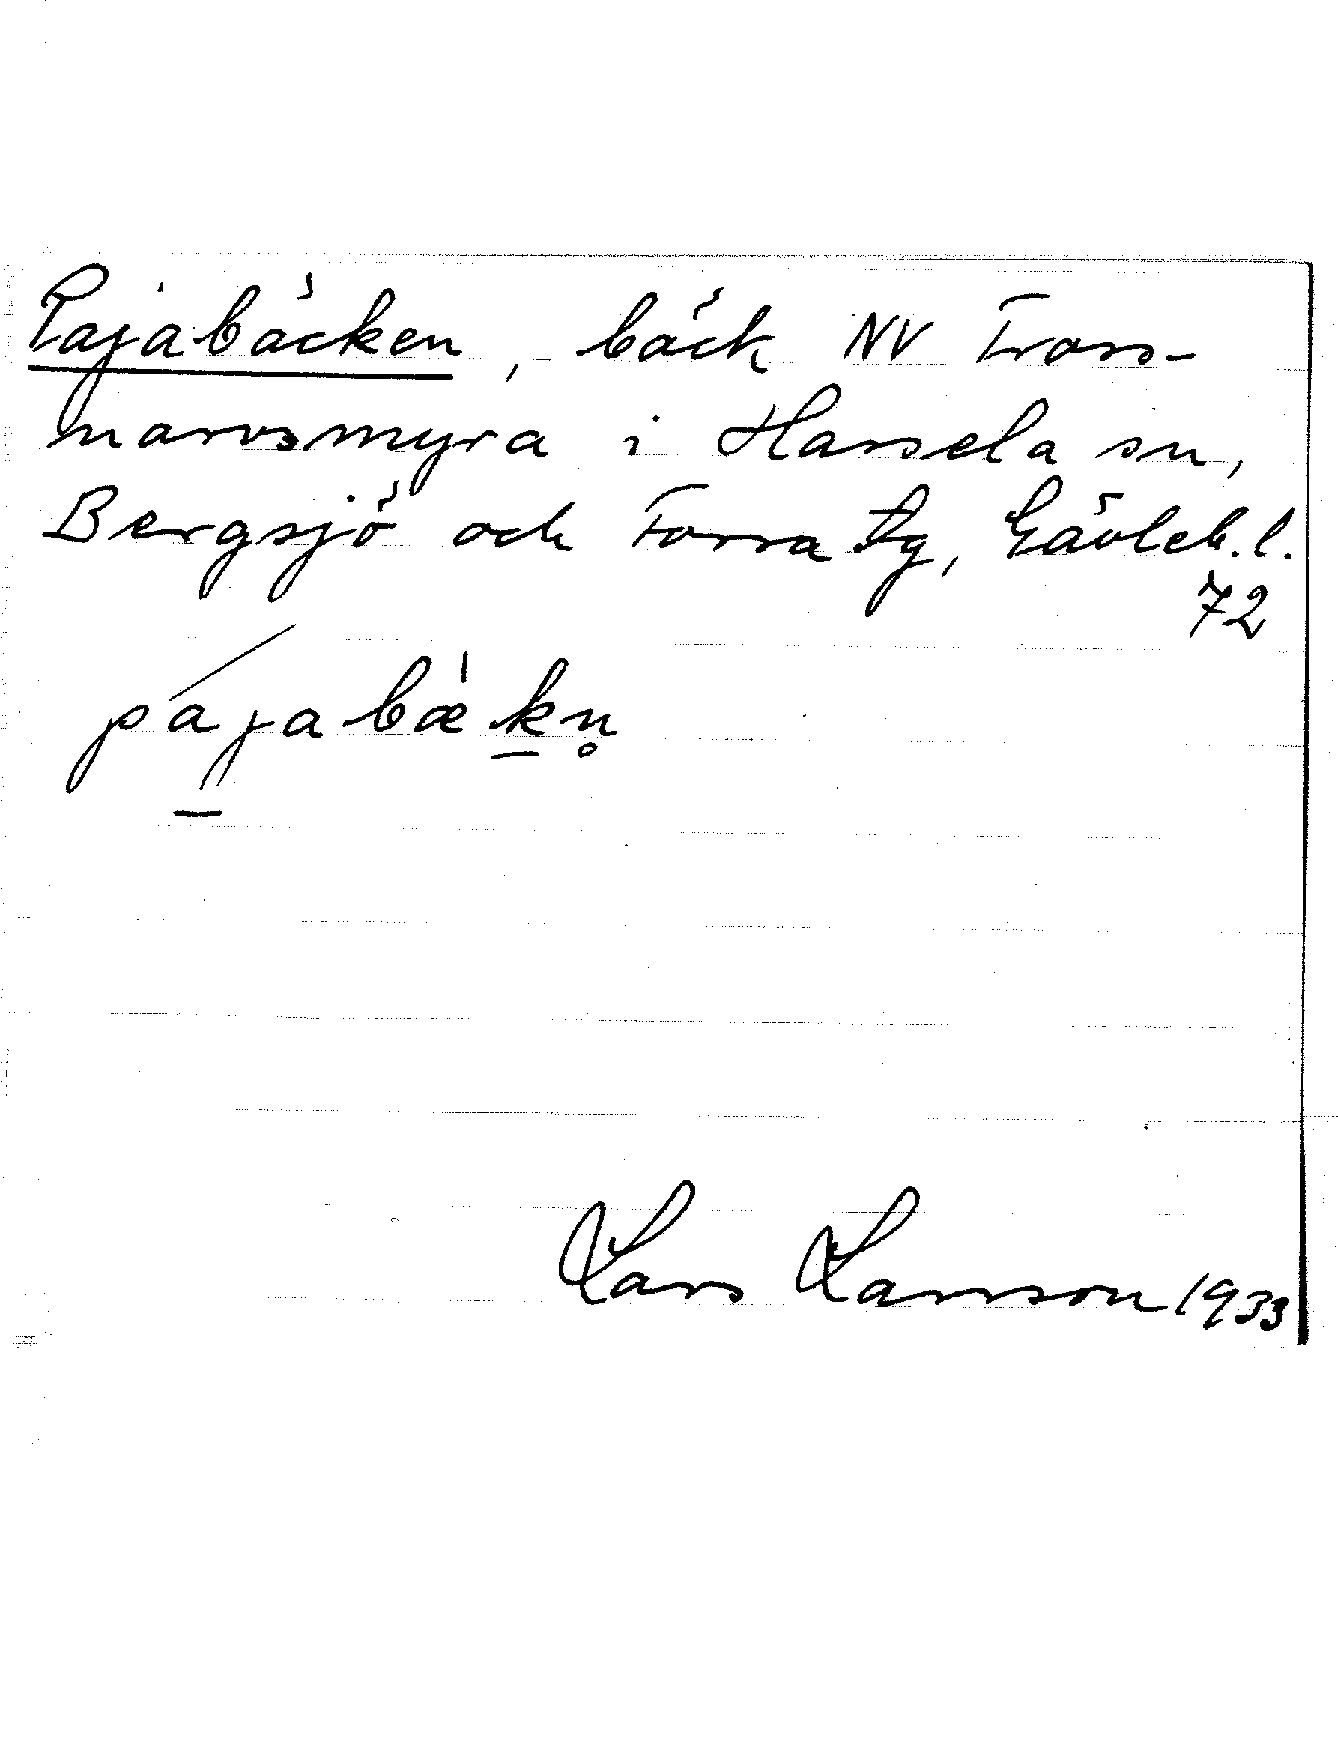 Pajabäcken, bäck NV Fross-
marvsmyra i Hassela sn,
Bergsjö och Forsa tg, Gävleb. l.
72
pajabäkn
Lars Larsson 1933